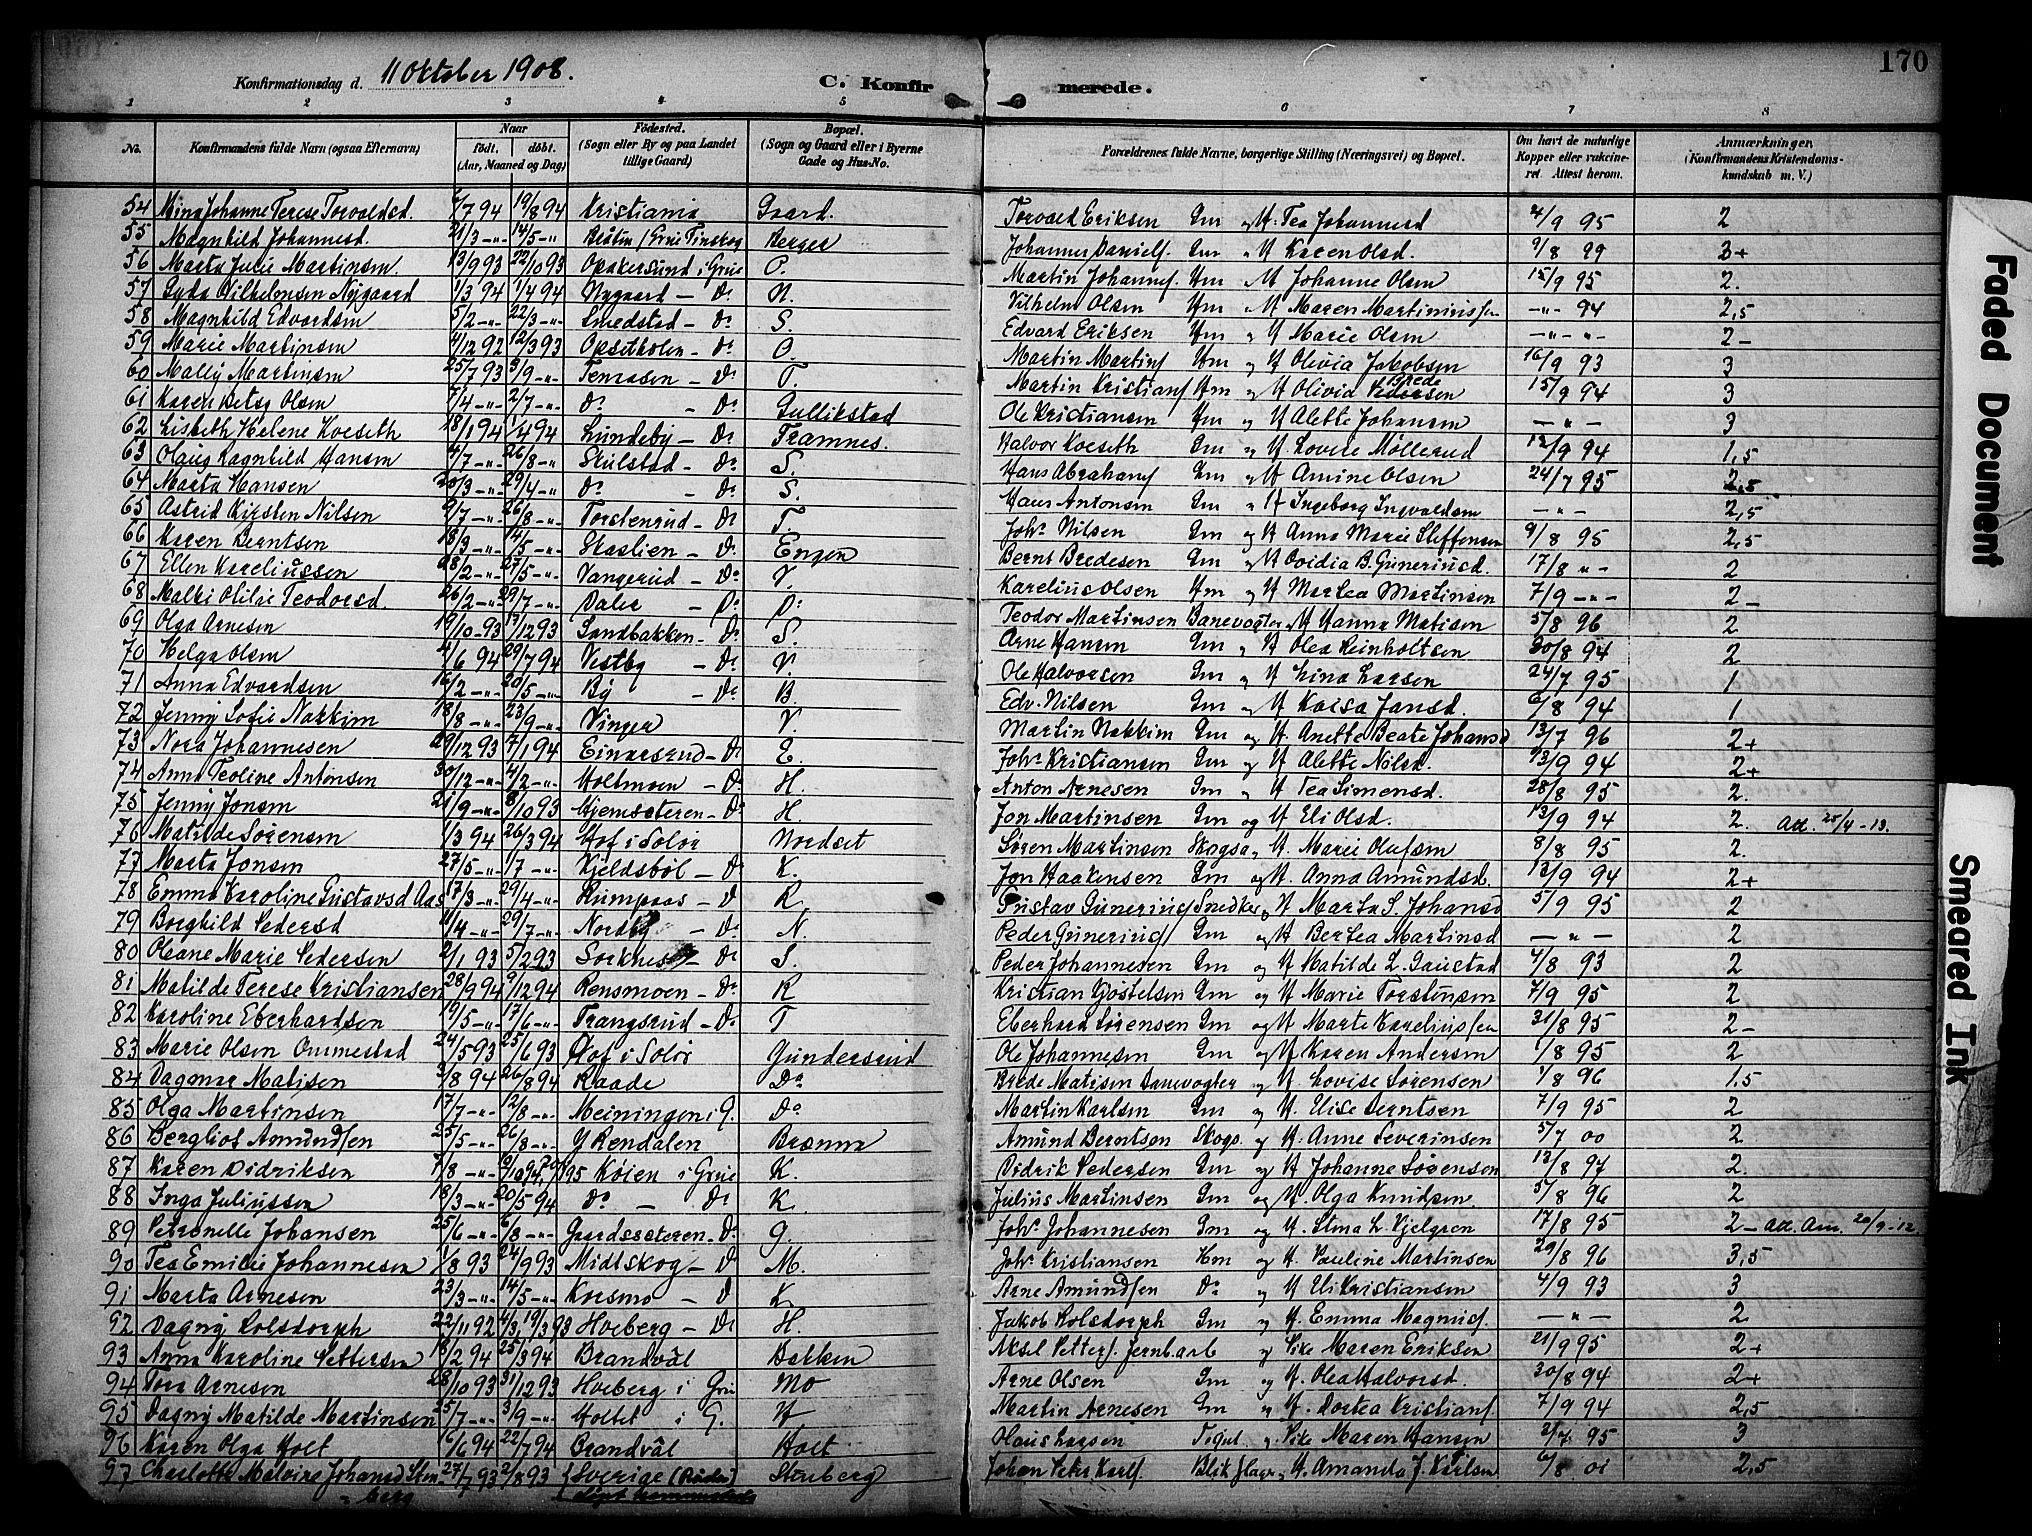 170
Konfirmationsdag d. 11 Oktober 1908.
C. Konfirmerede.
1 2 3 4 5 6 7 8
No. Konfirmandens fulde Navn (ogsaa Efternavn) Naar født. døbt. (Aar, Maaned og Dag) Fødested. (Sogn eller By og paa Landet tillige Gaard) Bopæl. (Sogn og Gaard eller i Byerne Gade og Hus-No. Forældrenes fulde Navne, borgerlige Stilling (Næringsvei) og Bopæl. Om havt de naturlige Kopper eller vakcineret. Attest herom. Anmærkninger (Konfirmandens Kristendomskundskab m. V.)
54 Mina Johanne Terese Torvaldsd. 6/7 94 19/8 94 Kristiania Gaard. Torvald Eriksen Gm og H. Tea Johannesd 4/9 95 2
55 Magnhild Johannesd. 21/3 -"- 14/5 -"- Grue Finskog Berger Johannes Danielf. Gm " H Karen Olsd. 9/8 99 3+
56 Marta Julie Martinsen. 13/9 93 22/10 93 Opakersund i Grue O. Martin Johannesf. Hm " H Johanne Olsen 15/9 95 2.
57 Gyda Vilhelmsen Nygaard 1/3 94 1/4 94 Nygaard - Do N. Vilhelm Olsen Hm " H Maren Martiniussen -"- 94 2,5
58 Magnhild Edvardsen 5/2 -"- 22/3 -"- Smedstad - Do S. Edvard Eriksen Hm og H Marie Olsen -"- -"- 2-
59 Marie Martinsen 4/12 92 12/3 93 Opsetkolen - do O. Martin Martinf Hm og H Olivia Jakobsen 16/9 93 3
60 Mally Martinsen 25/7 93 3/9 -"- Temasen - Do T. Martin Kristianf Hm og H Olivia Brede Pedersen 15/9 94 3
61 Karen Betsy Olsen 7/4 -"- 2/7 -"- Do - Do Gullikstad Ole Kristiansen Hm og H Alette Johansen - " - 3
62 Lisbeth Helene Koeseth 18/1 94 1/4 94 Lundeby - Do Framnes. Halvor Koeseth Gm og H Lovise Møllerud 12/9 94 1,5
63 Olaug Ragnhild Hansen 4/7 -"- 26/8 -"- Skulstad - Do S. Hans Abrahamf Gm og H Amine Olsen 24/7 95 2,5
64 Marta Hansen 30/3 -"- 29/4 -"- Do - Do S. Hans Antonsen Gm " H Ingeborg Ingvaldsen - " - 2,5
65 Astrid Kirsten Nilsen 9/7 -"- 26/8 -"- Torstenrud - Do T. Johs Nilsen Gm og H Anna Marie Steffensen 9/8 95 2,5
66 Karen Berntsen 18/3 -"- 14/5 -"- Skaslien - Do. Engen Bernt Bredesen Gm og H Ovidia B. Guneriusd. 17/8 "- 2
67 Ellen Kareliussen 28/2 -"- 27/5 -"- Vangerud - Do V. Karelius Olsen Hm og H Martea Martinsen 7/9 -"- 2-
68 Malki Otilie Teodorsd. 26/2 -"- 29/7 -"- Daler - Do D. Teodor Martinsen Banevogter og H Hanna Matisen 5/8 96 2
69 Olga Arnesen 19/10 -93 17/12 93 Sandbakken - Do S. Arne Hansen Gm og H Olea Reinholtsen 30/8 94 2
70 Helga Olsen 4/6 94 29/7 94 Vestby - Do V. Ole Halvorsen Gm og H Lina Larsen 24/7 95 1
71 Anna Edvardsen 16/2 -"- 20/5 -"- By - Do B. Edv. Nilsen Gm og H Kaisa Jansd. 6/8 94 1
72 Jenny Sofie Nakkim 18/8 -"- 23/9 -"- Vinger V. Martin Nakkim Gm og H. Anette Beate Johansd 13/7 96 2+
73 Nora Johannesen 29/12 93 7/1 94 Einarsrud - Do E. Johs Kristiansen Gm og H Alette Nilsd. 13/9 94 2+
74 Anna Teoline Antonsen 30/12 -"- 4/2 -"- Holtmoen - Do H. Anton Arnesen Gm og H Tea Simensd. 28/8 95 2.
75 Jenny Jonsen 21/9 -"- 8/10 93 Hjemseteren - Do H. Jon Martinsen Gm og H Eli Olsd. 13/9 94 2. Att. 25/4 - 13.
76 Matilde Sørensen 1/3 94 26/3 94 Hof i Solør Nordset Søren Martinsen Skogsa. og H. Marie Olufsen 8/8 95 2.
77 Marta Jonsen 27/5 -"- 1/7 -"- Kjeldsbøl - Do K. Jon Haakensen Gm og H. Anna Amundsd. 12/9 94 2+
78 Emma Karoline Gustavsd Aas 17/3 -"- 29/4 -"- Rumpaas - D R. Gustav Guneriusf Snedker og H Marta S. Johansd 5/9 95 2
79 Borghild Pedersd 11/4 -"- 29/7 -"- Nordby - Do N. Peder Guneriusf Gm og H Bertea Martinsd - " - 2
80 Oleane Marie Pedersen 2/1 93 5/2 93 Sorknes - Do S. Peder Johannesen Gm og H Matilde L. Gaustad 4/8 93 2
81 Matilde Terese Kristiansen 28/9 94 9/12 94 Rensmoen - Do R Kristian Gjøstelsen Gm og H Marie Torstensen 7/9 95 2
82 Karoline Eberhardsen 19/5 -"- 17/6 -"- Trangsrud - Do T Eberhard Sørensen Gm og H Marte Kareliussen 31/8 95 2-
83 Marie Olsen Ommestad 24/5 93 25/6 93 Hof i Solør Gundersrud Ole Johannesen Gm og H Karen Andersen 1/8 95 2
84 Dagmar Matisen 3/8 94 26/8 94 Raade Do Brede Matisen Banevogter og H Lovise Sørensen 1/8 96 1,5
85 Olga Martinsen 17/7 -"- 12/8 -"- Meiningen i G. Do Martin Karlsen Gm og H. Elise Berntsen 7/9 95 2
86 Bergliot Amundsen 25/5 -"- 26/8 -"- Y Rendalen Brænna Amund Berntsen Skogs. og H. Anne Severinsen 5/7 00 2
87 Karen Didriksen 7/8 -"- Køien i Grue K. Didrik Pedersen Gm og H Johanne Sørensen 13/8 97 2.
88 Inga Juliussen 18/3 -"- 20/5 94 Do - Do K. Julius Martinsen Gm og H. Olga Knudsen. 5/8 96 2
89 Petronelle Johansen 25/6 -"- 6/8 -"- Gaardsseteren - Do G. Johs Johannesen Gm og H. Stina L Kjelgren 17/8 95 2- Att. Am. 20/9 - 12.
90 Tea Emilie Johannesen 1/8 93 24/9 93 Midtskog - D M. Johs Kristiansen Hm og H. Pauline Martinsen 29/8 96 3,5
91 Marta Arnesen 23/3 -"- 14/5 -"- Korsmo - D K. Arne Amundsen Do og H Eli Kristiansen 4/9 93 3
92 Dagny Rolsdorph 22/11 92 4/3, 19/3 93 Hveberg - Do H. Jakob Rolsdorph Gm og H. Emma Magnusf. - " - 2
93 Anna Karoline Pettersen 18/2 94 25/3 94 Brandvål Bakken Aksel Petterf. Jernb. arb og Pike Maren Eriksen 21/9 95 2+
94 Tora Arnesen 28/10 93 31/12 93 Hveberg i Gru Mo Arne Olsen Gm og H. Olea Halvorsd. 30/8 94 2+
95 Dagny Matilde Martinsen 25/7 -"- 3/9 -"- Holtet i G. H Martin Arnesen Gm og H. Dortea Kristianf 7/9 94 2,5
96 Karen Olga Holt 16/6 94 22/7 94 Brandvål Holt Olaus Larsen og Pike Maren Hansen 2/7 95 3
97 Charlotte Malvina Johansd Stenberg 27/7 93 2/8 93 Sverige (Råden) Stenberg Johan Peter Karlf. Blikslager og H. Amanda J. Karlsen 6/8 01 2,5
Faded Document
Smeared Ink